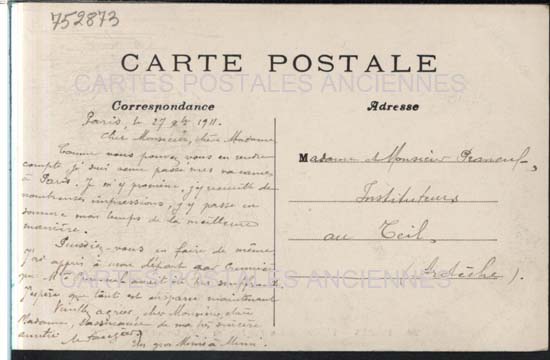 752873
CARTE POSTALE
CARTES POSTALES ANCIENNES
Correspondance
Adresse
Paris, le 27 9bre 1911.
Cher Monsieur, chère Madame,
Comme vous pouvez vous en rendre
compte je suis venu passer mes vacances
à Paris. Je m'y promène, j'y recueille de
nombreuses impressions, j'y passe en
somme mon temps de la meilleure
manière.
Puissiez-vous en faire de même
J'ai appris à mon départ que
que avait été
j'espère que tout est disparu maintenant
Veuillez agréer, cher Monsieur, chère
Madame, l'assurance de ma très sincère
amitié
Un gros Mimi à Mimi.
Madame et Monsieur
Instituteurs
au Teil,
(Ardèche).
CARTES POSTALES ANCIENNES